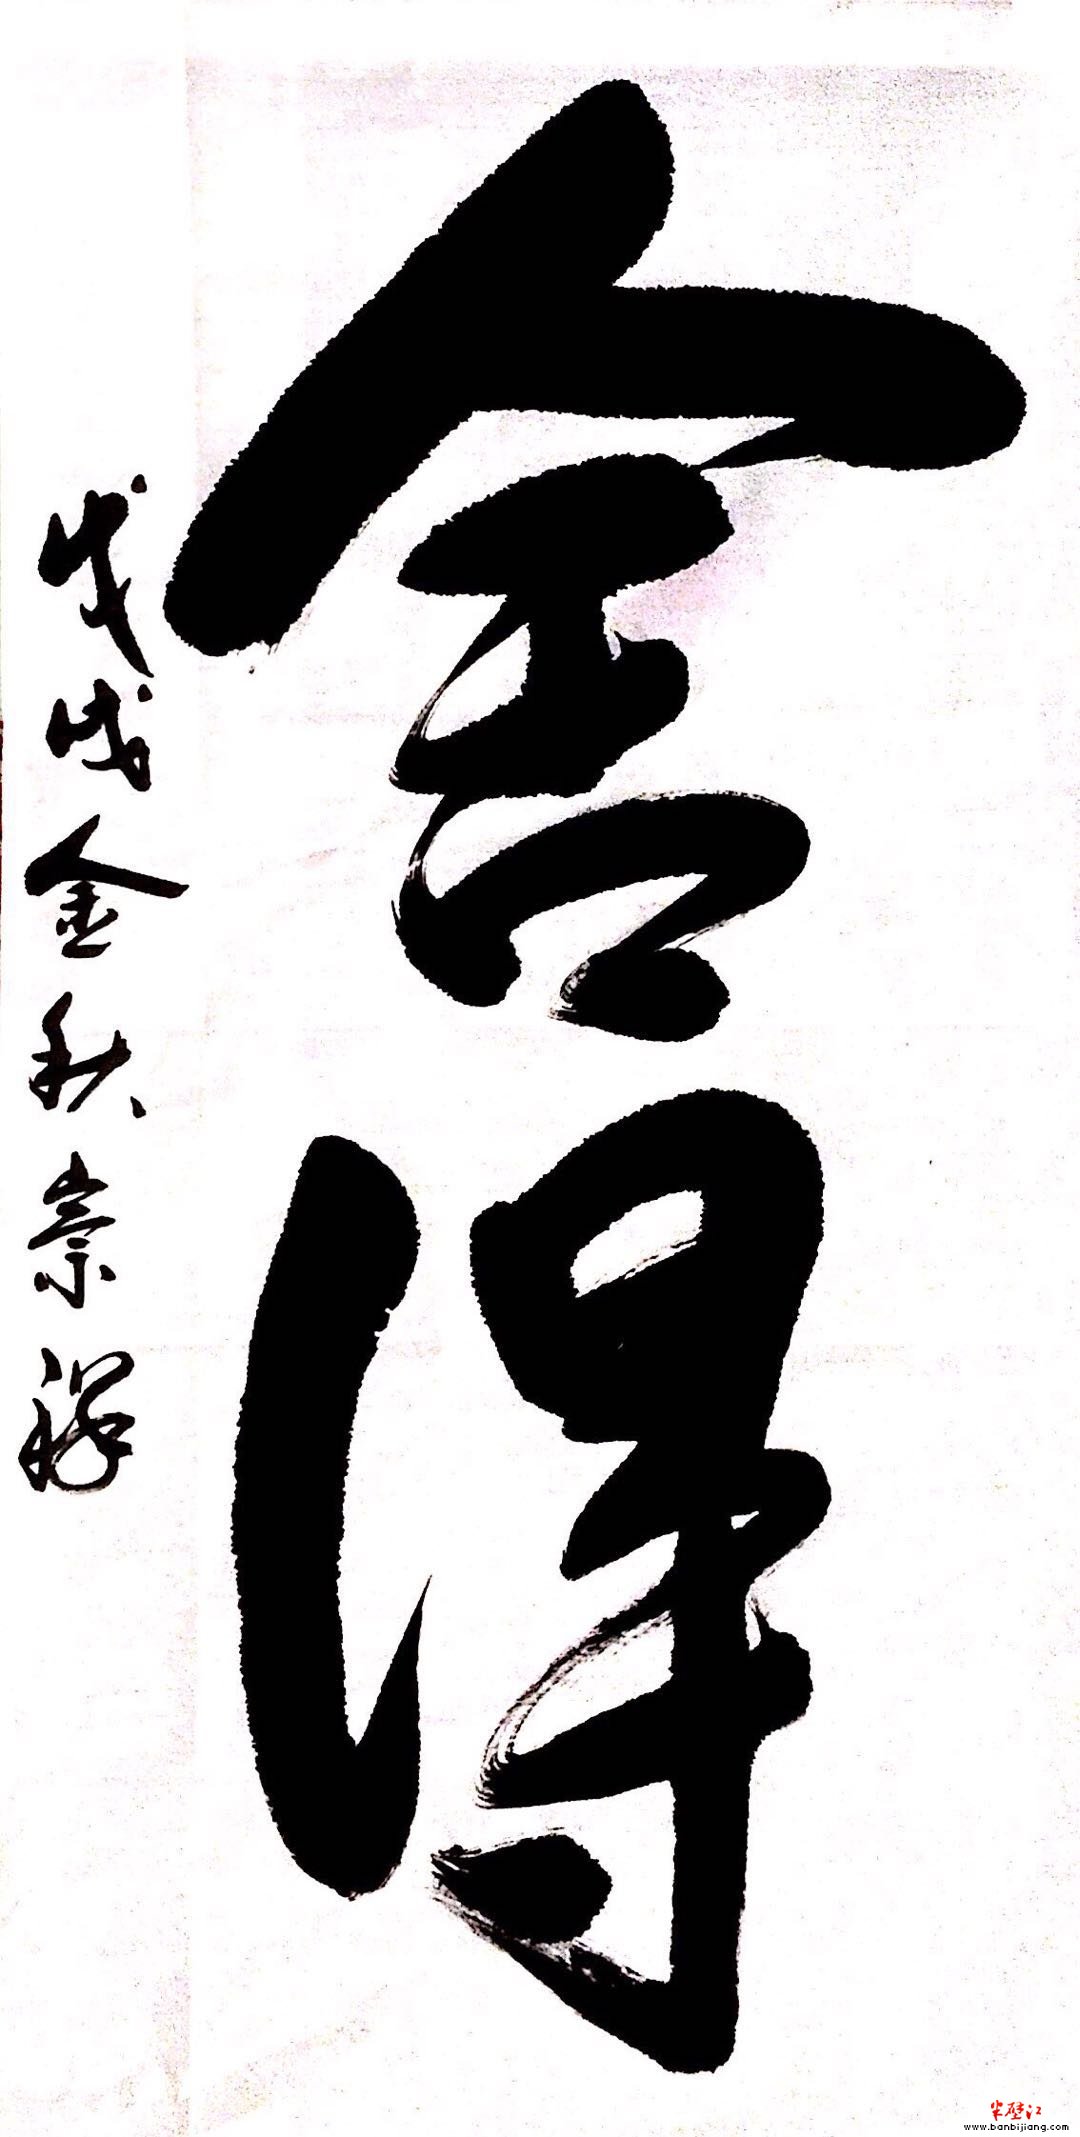 舍得
戊戌金秋崇祥
半壁江
www.banbijiang.com